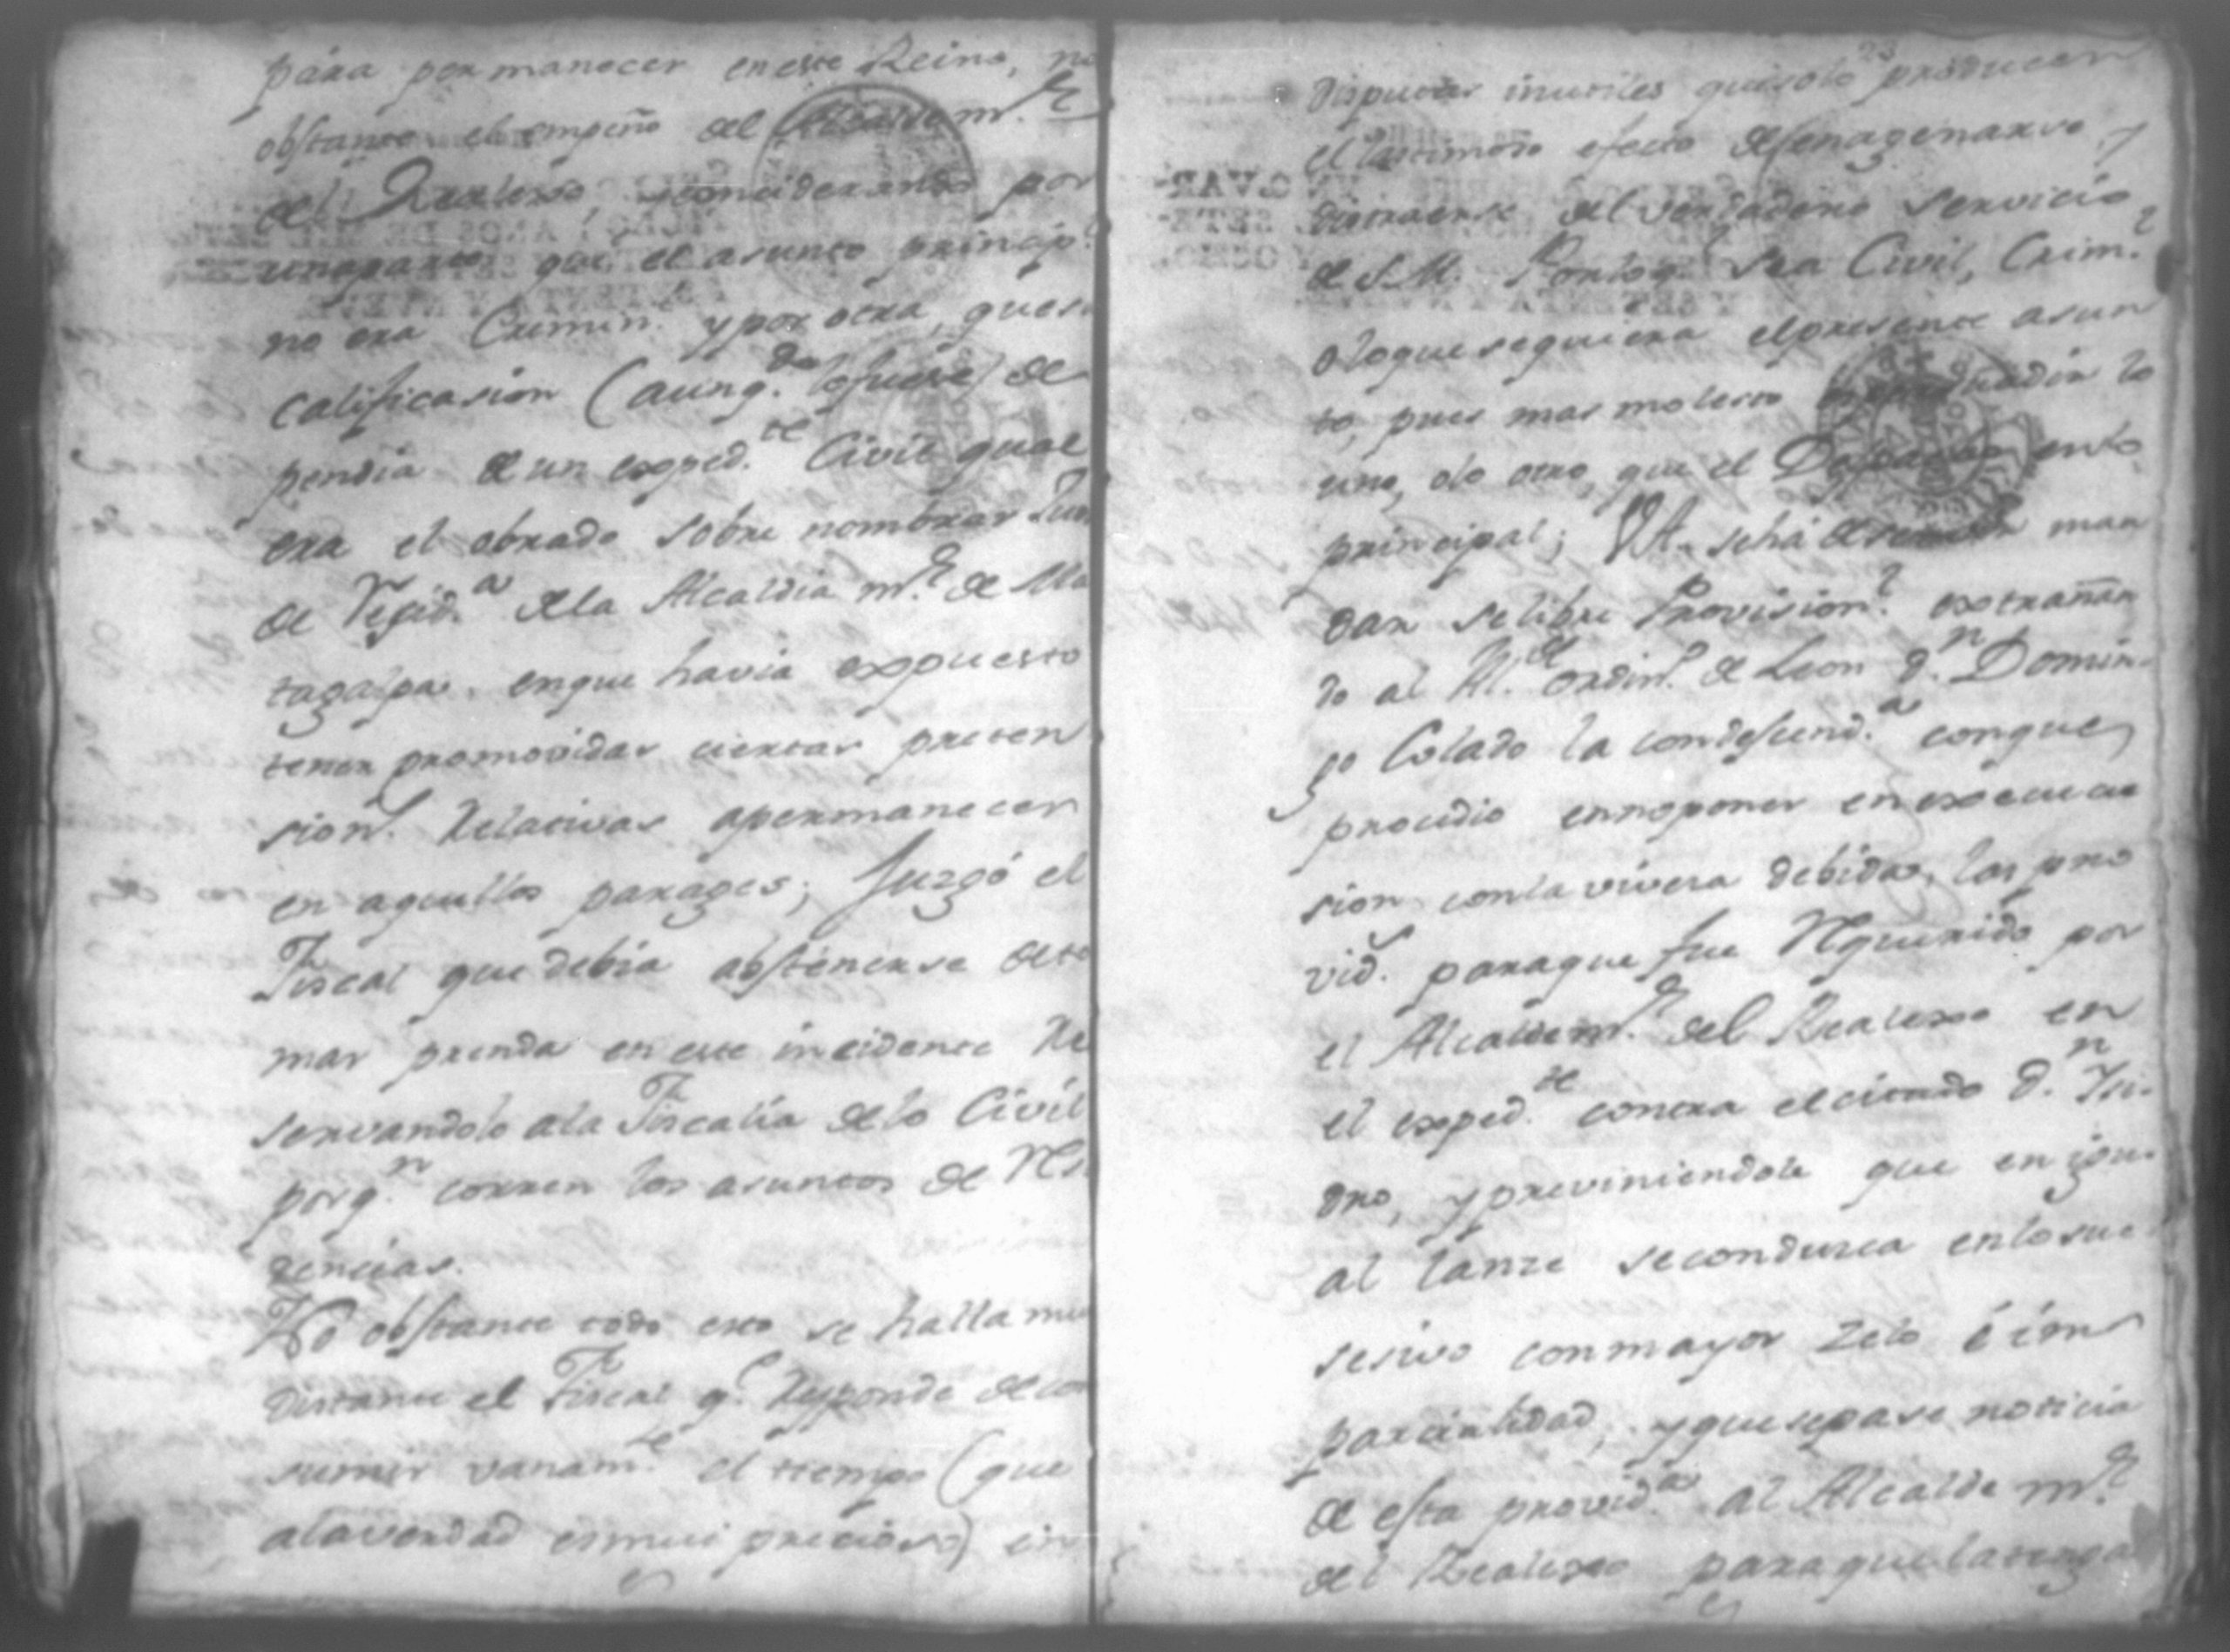 para permanecer en este Reino, no
obstante el empeño del Alcalde m.r
del Realexo, y considerando por
una parte que el asunto princip.l
no era Crimin.l y por otra, que su
calificasion (aunq.do lo fuese) de
pendia de un exped.te Civil qual
era el obrado sobre nombrar Jues
de Resid.a de la Alcaldia m.r de Ma
tagalpa, en que havia expuesto
tener promovidas ciertas preten
sion.s Relativas a permanecer
en aquellos parages; Juzgó el
Fiscal que debia abstenerse de to
mar prenda en este incidente Re
servandolo a la Fiscalia de lo Civil
por q.n corren los asuntos de Resi
dencias.
No obstante todo esto se halla mui
distante el Fiscal q.e Responde de con
sumir vanam.te el tiempo (que
a la verdad es mui precioso) en
23
disputas inutiles que solo producen
el lastimoso efecto de enagenarse, y
distraerse del verdadero servicio
de S.M. Por lo q.e sea Civil, Crim.l
o lo que se quiera el presente asun
to, pues mas molesto lo
uno, o lo otro, que el en lo
principal; VA. se há de servir man
dar se libre Provision.l extrañan
do al Al.de ordin.o de Leon d.n Domin-
go Colado la condescend.a con que
procedio en no poner en execucu
sion con la viveza debida, las pro
vid.s para que fue Requerido por
el Alcalde m.r del Realexo en
el exped.te contra el citado d.n Ysi-
dro, y previniendole que en igu-
al lanze se conduzca en lo suc
sesivo con mayor zelo é im
parcialidad, y que se pase noticia
de esta provid.a al Alcalde m.r
del Realexo para que la tenga